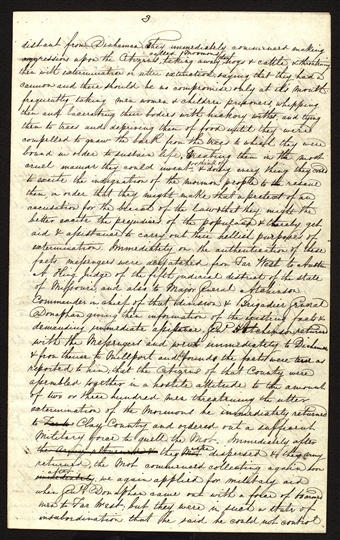 3
distant from Diahman. They immediately commenced making
called Mormons
aggressions upon the Citizens taking away their hogs & cattle & threatening
them with extermination or utter extinction, saying that they had a
cannon and there should be no compromise only at its mouth
frequently taking men women & children prisoners whipping
them and lacerating their bodies with hickory withes and tying
them to trees and depriving them of food until they were
compelled to gnaw the bark from the trees to which they were
bound in order to sustain life, treating them in the most
cruel manner they could invent, & doing every thing they could
to excite the indignation of the mormon people to the rescue
them in order that they might make that a pretext of an
accusation for the breach of the law & that they might the
better excite the prejudice of the populace & thereby get
aid & assistance to carry out their hellish purposes of
extermination Immediately on the authentication of these
facts messengers were despatched from Far West to Austin
A. King judge of the fifth judicial district of the state
of Missouri and also to Major General Atchison
Commander in chief of that division & Brigadier General
Doniphan giving them information of the existing facts &
demanding immediate assistance. Gen Atchison returned
with the Messengers and went immediately to Diahman
& from thence to Millport and found the facts were true as
reported to him, that the Citizens of that County were
assembled together in a hostile attitude to the amount
of two or three hundred men threatening the utter
extermination of the Mormons he immediately returned
to Clay County and ordered out a sufficient
Military force to quell the Mob. Immediately after
they were dispersed & the army
returned the Mob commenced collecting again soon
after we again applied for military aid
when Gen Doniphan came out with a force of
men to Far West, but they were in such a state of
insubordination that he said he could not control